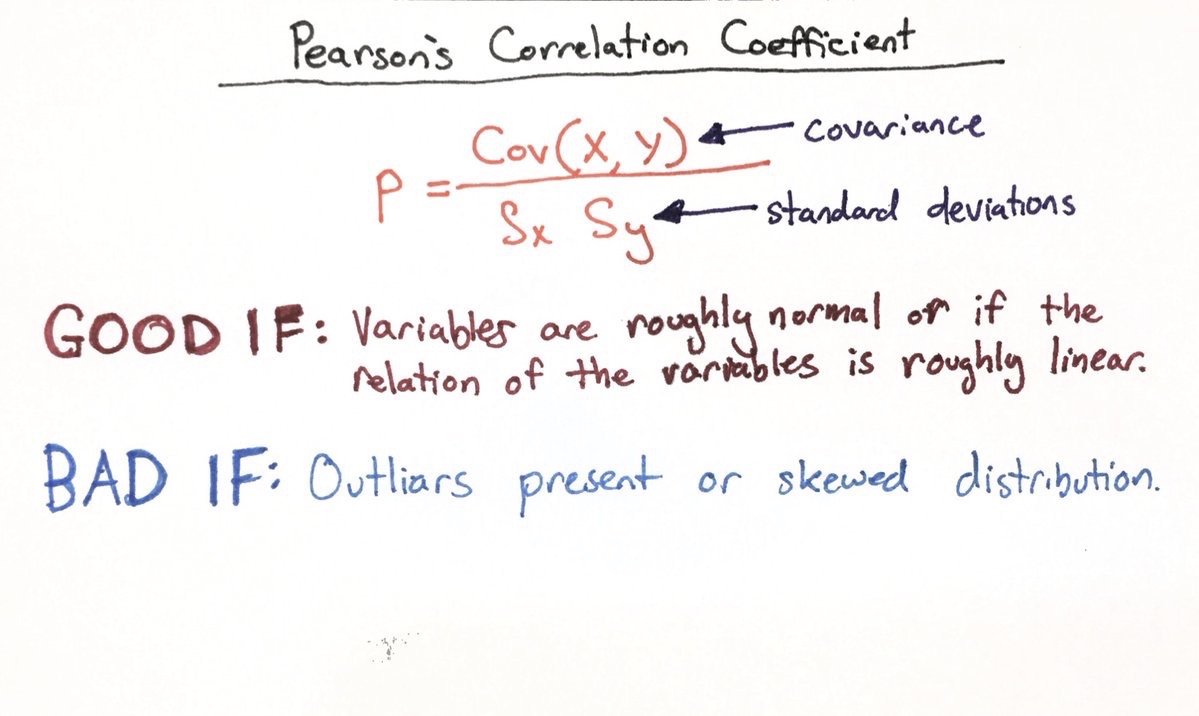 Pearson's Correlation Coefficient
Cov(X, Y) covariance
P =
Sx Sy standard deviations
GOOD IF: Variables are roughly normal or if the
relation of the variables is roughly linear.
BAD IF: Outliars present or skewed distribution.